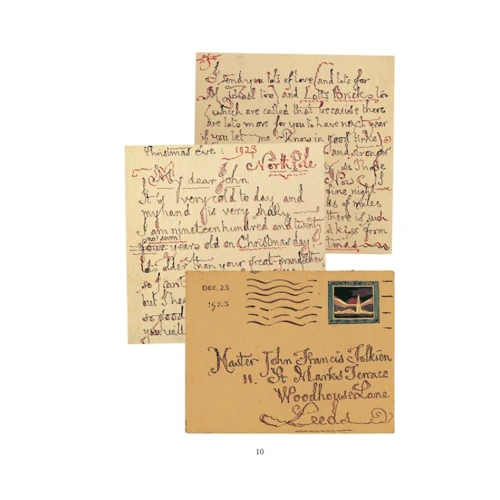 I send you lots of love (and lots for
Michael too) and Lotts Bricks too
(which are called that because there
are lots more for you to have next year
if you let me know in good time)
and stronger
So I hope
Now I
fine night
of miles
there is such
kiss from
mas
Christmas Eve: 1923
North Pole
My dear John
It is very cold to day and
my hand is very shaky —
I am nineteen hundred and twenty
no! seven!
four years old on Christmas day,
lots older than your great-grandfather
so I can't
but I hear
so good
you will
DEC. 23
1923
Master John Francis Tolkien
11. St Marks Terrace
Woodhouse Lane
Leeds
10